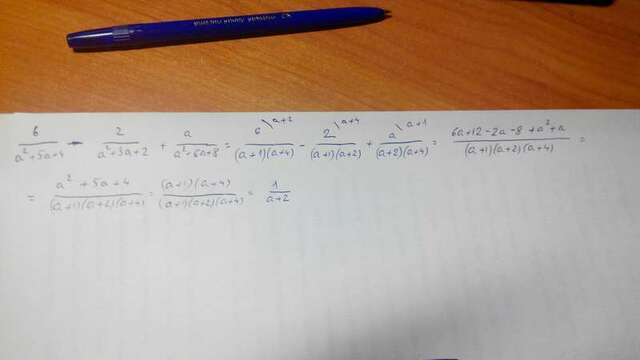 6/(a²+5a+4) - 2/(a²+3a+2) + a/(a²+6a+8) = 6\a+2/((a+1)(a+4)) - 2\a+4/((a+1)(a+2)) + a\a+1/((a+2)(a+4)) = (6a+12-2a-8+a²+a)/((a+1)(a+2)(a+4)) =
= (a²+5a+4)/((a+1)(a+2)(a+4)) = ((a+1)(a+4))/((a+1)(a+2)(a+4)) = 1/(a+2)